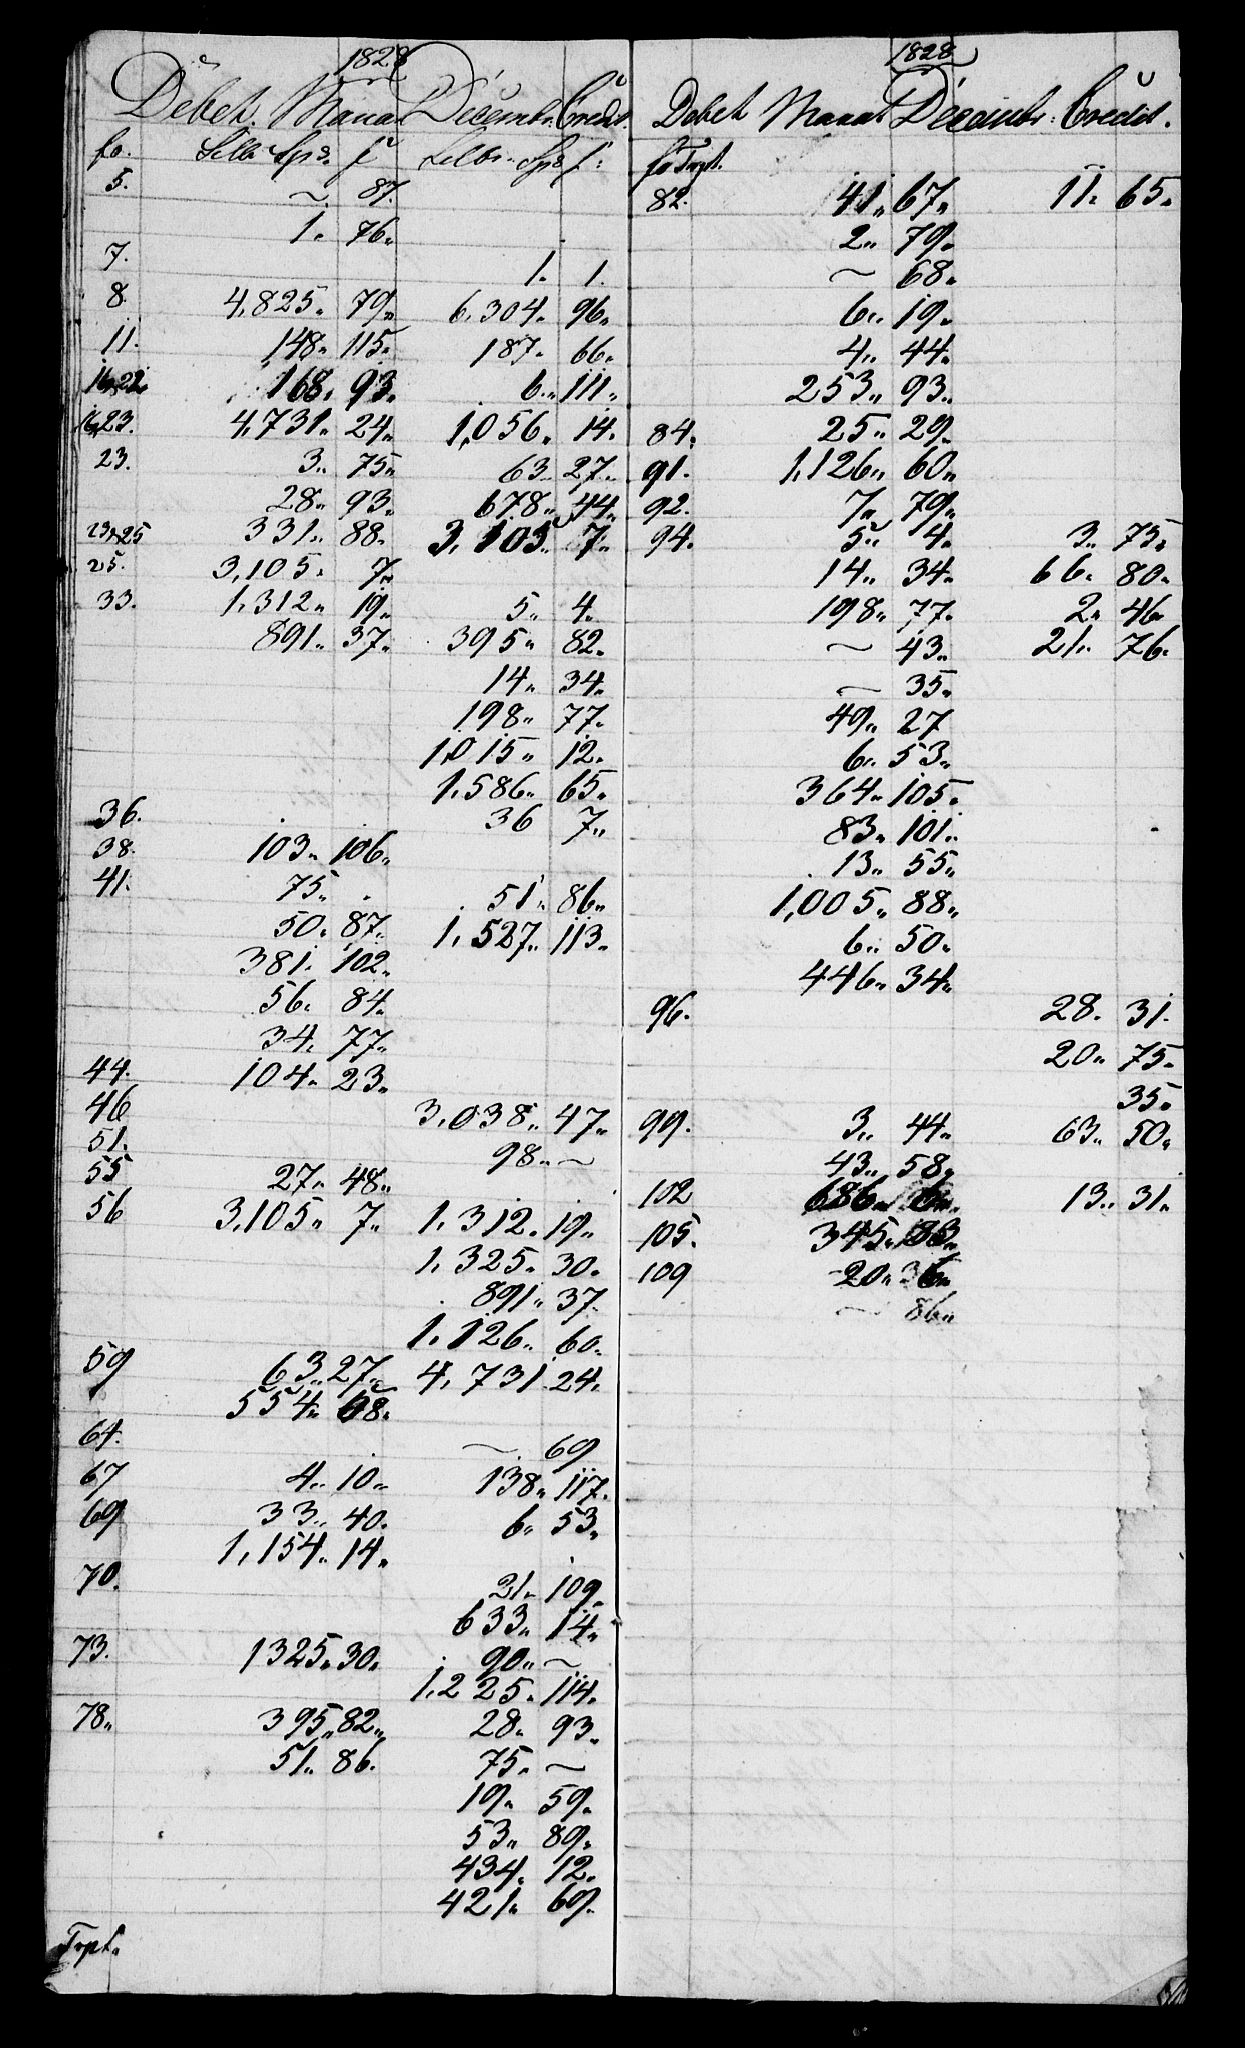 1828
Debet. Manat Decembr. Credit.
fo. Sölbr Sps. f Sölbr. Sps f:
5. ~ 87.
1. 76.
7. 1. 1.
8. 4,825. 79. 6,304. 96.
11. 148. 115. 187. 66.
16,22. 168. 93. 6. 111.
16,23. 4,731. 24. 1,056. 14.
23. 3. 75. 63. 27.
28. 93. 678. 44.
23,25 331. 88. 3,105. 7.
25. 3,105. 7.
33. 1,312. 19. 5. 4.
891. 37. 395. 82.
14. 34.
198. 77.
1,015. 12.
1,586. 65.
36. 36 7.
38. 103. 106.
41. 75. . 51. 86.
50. 87. 1,527. 113.
381. 102.
56. 84.
34. 77.
44. 104. 23.
46 3,038. 47.
51. 98. ~
55 27. 48.
56 3,105. 7. 1,312. 19.
1,325. 30.
891. 37.
1,126. 60.
59 63. 27. 4,731. 24.
554. 68.
64. ~ 69
67 4. 10. 138. 117.
69 33. 40. 6. 53.
1,154. 14.
70. 21. 109.
633. 14.
73. 1325. 30. 90. ~
1,225. 114.
78. 395. 82. 28. 93.
51. 86. 75. ~
19. 59.
53. 89.
434. 12.
421. 69.
Trpt.
1828
Debet Manat Decembr. Credit.
fo Trpt.
82. 41. 67. 11. 65.
2. 79.
~ 68.
6. 19.
4. 44.
253. 93.
84. 25. 29.
91. 1,126. 60.
92. 7. 79.
94. 5. 4. 3. 75.
14. 34. 66. 80.
198. 77. 2. 46.
~ 43. 21. 76.
~ 35.
49. 27
6. 53.
364. 105.
83. 101.
13. 55.
1,005. 88.
6. 50.
446. 34.
96. 28. 31.
20. 75.
35.
99. 3. 44. 63. 50.
43. 58.
102 686. 6. 13. 31.
105. 345.
109 20. 36.
~ 86.